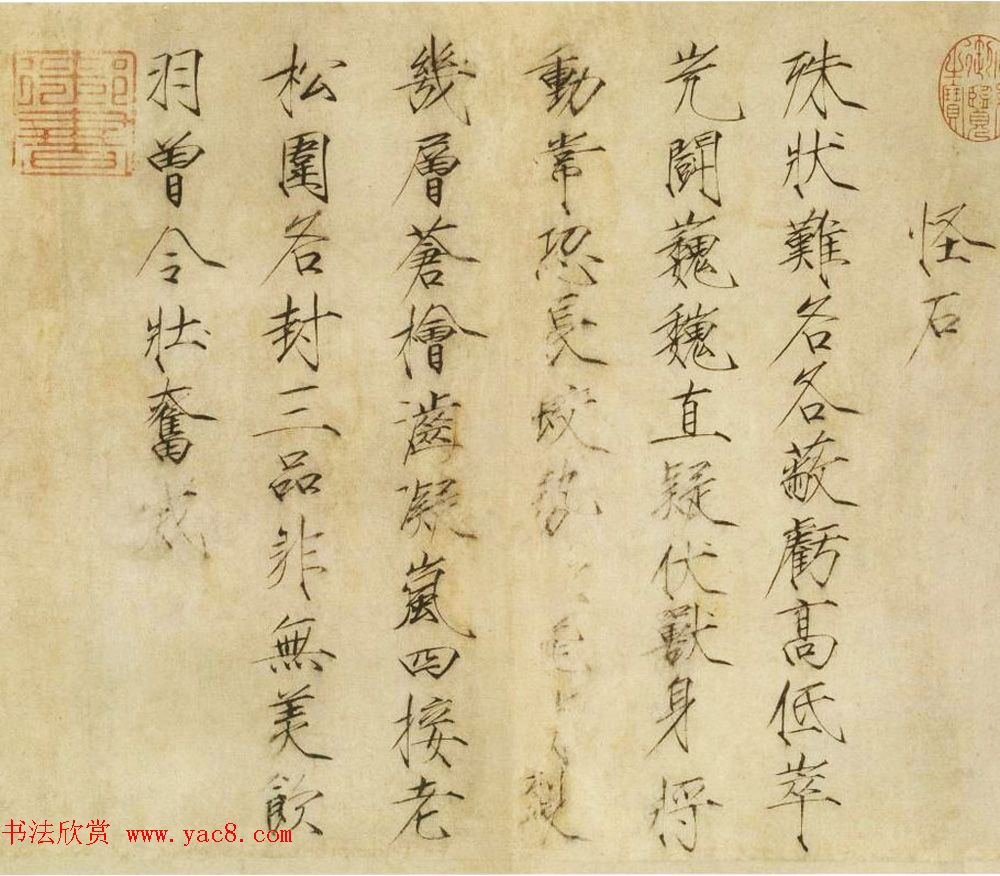 怪石
殊狀難各各蔽虧高低萃
闘巍巍直疑伏獸身将
動常恐長蛟勢色
幾層蒼檜凝嵐四接老
松圍各封三品非無美飲
羽曾令壯奮
御覽之寶
书法欣赏 www.yac8.com